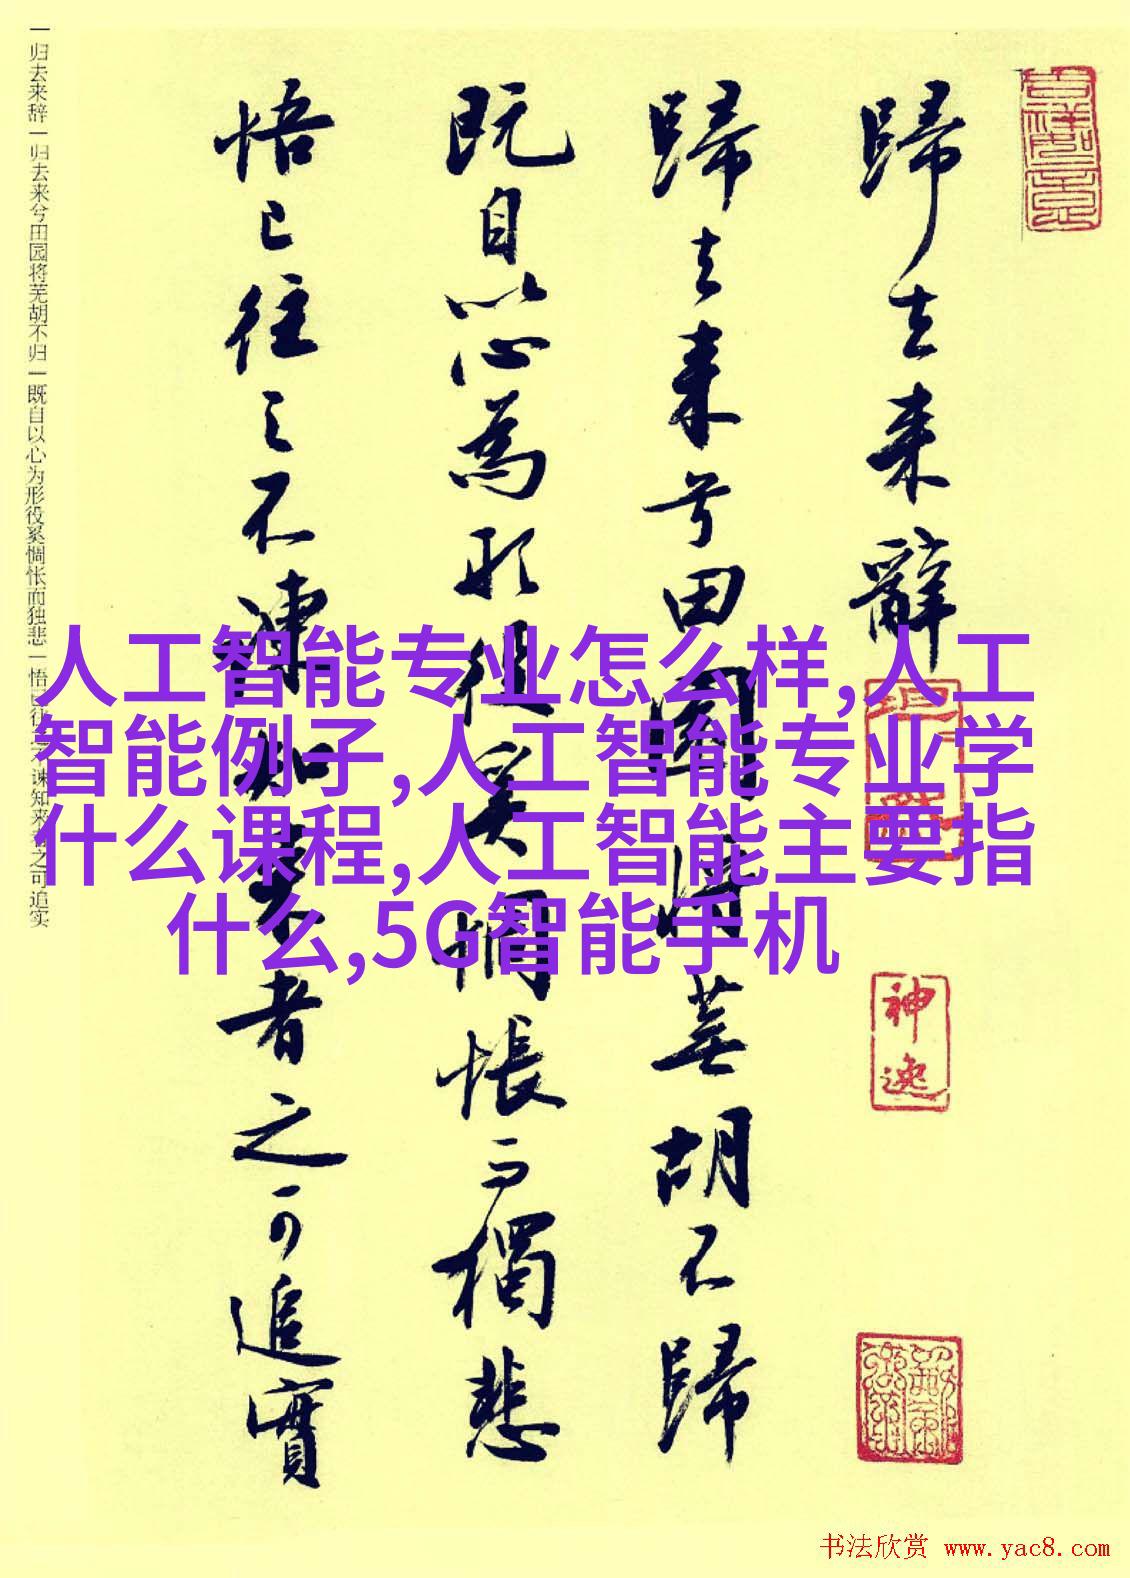 歸去来辭
歸去来兮田園将蕪胡不歸
既自以心為形役奚惆悵而獨悲
悟已往之不諫知来者之可追實
神逸
一归去来辞一归去来兮田园将芜胡不归一既自以心为形役奚惆怅而独悲一悟已往之不谏知来者之可追实
人工智能专业怎么样,人工
智能例子,人工智能专业学
什么课程,人工智能主要指
什么,5G智能手机
书法欣赏 www.yac8.com